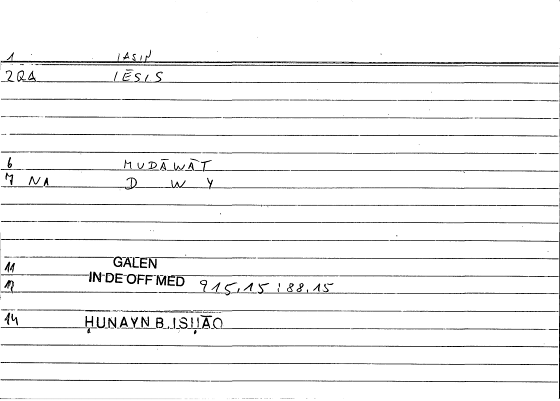 1 IASIN
2QA IĒSIS
6 MUDĀWĀT
7 NA D W Y
11 GALEN
12 IN DE OFF MED 915,15:88,15
14 ḤUNAYN B. ISḤĀQ